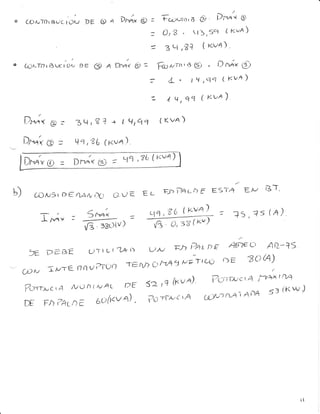 • CONTRIBUCIÓN DE @ A Dmáx @ = Fcontrib @ · Dmáx @
= 0,8 · 43,59 (KVA)
= 34,87 (KVA).
• CONTRIBUCIÓN DE @ A Dmáx @ = Fcontrib @ · Dmáx @
= 1 · 14,99 (KVA)
= 14,99 (KVA)
Dmáx @ = 34,87 + 14,99 (KVA)
Dmáx @ = 49,86 (KVA).
Dmáx @ = Dmáx @ = 49,86 (KVA)
b) CONSIDERANDO QUE EL EMPALME ESTÁ EN BT.
Imáx = Smáx / √3 · 380(V) = 49,86 (KVA) / √3 · 0,38 (KV) = 75,75 (A).
SE DEBE UTILIZAR UN EMPALME AEREO AR-75
CON INTERRUPTOR TERMOMAGNETICO DE 80(A)
POTENCIA NOMINAL DE 52,7 (KVA) POTENCIA MAXIMA
DE EMPALME 60(KVA). POTENCIA CONTRATADA 53 (KW)